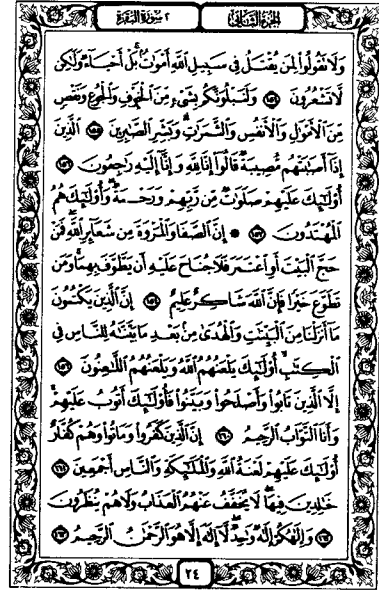 الجزء الثاني ٢ سورة البقرة
وَلَا تَقُولُوا لِمَن يُقْتَلُ فِي سَبِيلِ اللَّهِ أَمْوَاتٌ بَلْ أَحْيَاءٌ وَلَٰكِن
لَّا تَشْعُرُونَ ١٥٤ وَلَنَبْلُوَنَّكُم بِشَيْءٍ مِّنَ الْخَوْفِ وَالْجُوعِ وَنَقْصٍ
مِّنَ الْأَمْوَٰلِ وَالْأَنفُسِ وَالثَّمَرَٰتِ وَبَشِّرِ الصَّٰبِرِينَ ١٥٥ الَّذِينَ
إِذَا أَصَٰبَتْهُم مُّصِيبَةٌ قَالُوا إِنَّا لِلَّهِ وَإِنَّا إِلَيْهِ رَٰجِعُونَ ١٥٦
أُولَٰئِكَ عَلَيْهِمْ صَلَوَٰتٌ مِّن رَّبِّهِمْ وَرَحْمَةٌ وَأُولَٰئِكَ هُمُ
الْمُهْتَدُونَ ١٥٧ ۞ إِنَّ الصَّفَا وَالْمَرْوَةَ مِن شَعَائِرِ اللَّهِ فَمَنْ
حَجَّ الْبَيْتَ أَوِ اعْتَمَرَ فَلَا جُنَاحَ عَلَيْهِ أَن يَطَّوَّفَ بِهِمَا وَمَن
تَطَوَّعَ خَيْرًا فَإِنَّ اللَّهَ شَاكِرٌ عَلِيمٌ ١٥٨ إِنَّ الَّذِينَ يَكْتُمُونَ
مَا أَنزَلْنَا مِنَ الْبَيِّنَٰتِ وَالْهُدَىٰ مِن بَعْدِ مَا بَيَّنَّٰهُ لِلنَّاسِ فِي
الْكِتَٰبِ أُولَٰئِكَ يَلْعَنُهُمُ اللَّهُ وَيَلْعَنُهُمُ اللَّٰعِنُونَ ١٥٩
إِلَّا الَّذِينَ تَابُوا وَأَصْلَحُوا وَبَيَّنُوا فَأُولَٰئِكَ أَتُوبُ عَلَيْهِمْ
وَأَنَا التَّوَّابُ الرَّحِيمُ ١٦٠ إِنَّ الَّذِينَ كَفَرُوا وَمَاتُوا وَهُمْ كُفَّارٌ
أُولَٰئِكَ عَلَيْهِمْ لَعْنَةُ اللَّهِ وَالْمَلَٰئِكَةِ وَالنَّاسِ أَجْمَعِينَ ١٦١
خَٰلِدِينَ فِيهَا لَا يُخَفَّفُ عَنْهُمُ الْعَذَابُ وَلَا هُمْ يُنظَرُونَ
١٦٢ وَإِلَٰهُكُمْ إِلَٰهٌ وَٰحِدٌ لَّا إِلَٰهَ إِلَّا هُوَ الرَّحْمَٰنُ الرَّحِيمُ ١٦٣
٢٤